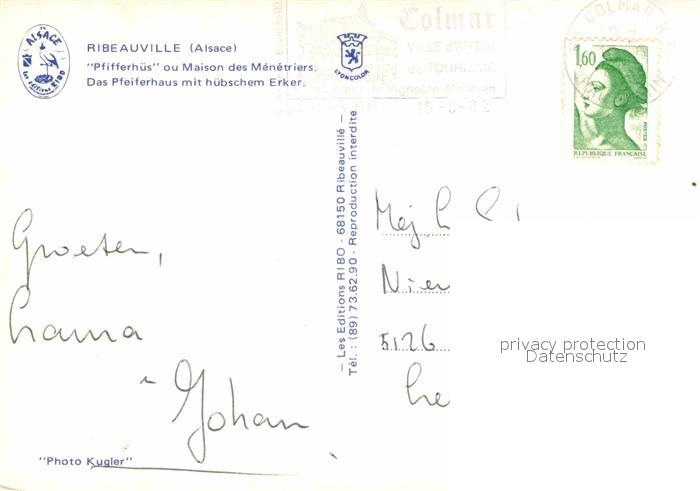 ALSACE
RIBEAUVILLE (Alsace)
"Pfifferhüs" ou Maison des Ménétriers.
Das Pfeiferhaus mit hübschem Erker.
LYONCOLOR
Colmar
VILLE d'ART et
de TOURISME
du Vignoble Alsacien
COLMAR R.P.
1,60
POSTES
REPUBLIQUE FRANÇAISE
— Les Editions RIBO - 68150 Ribeauvillé —
Tél.: (89) 73.62.90 - Reproduction interdite
Groeten,
Johan
Mej.
Nien
5126
privacy protection
Datenschutz
"Photo Kugler"